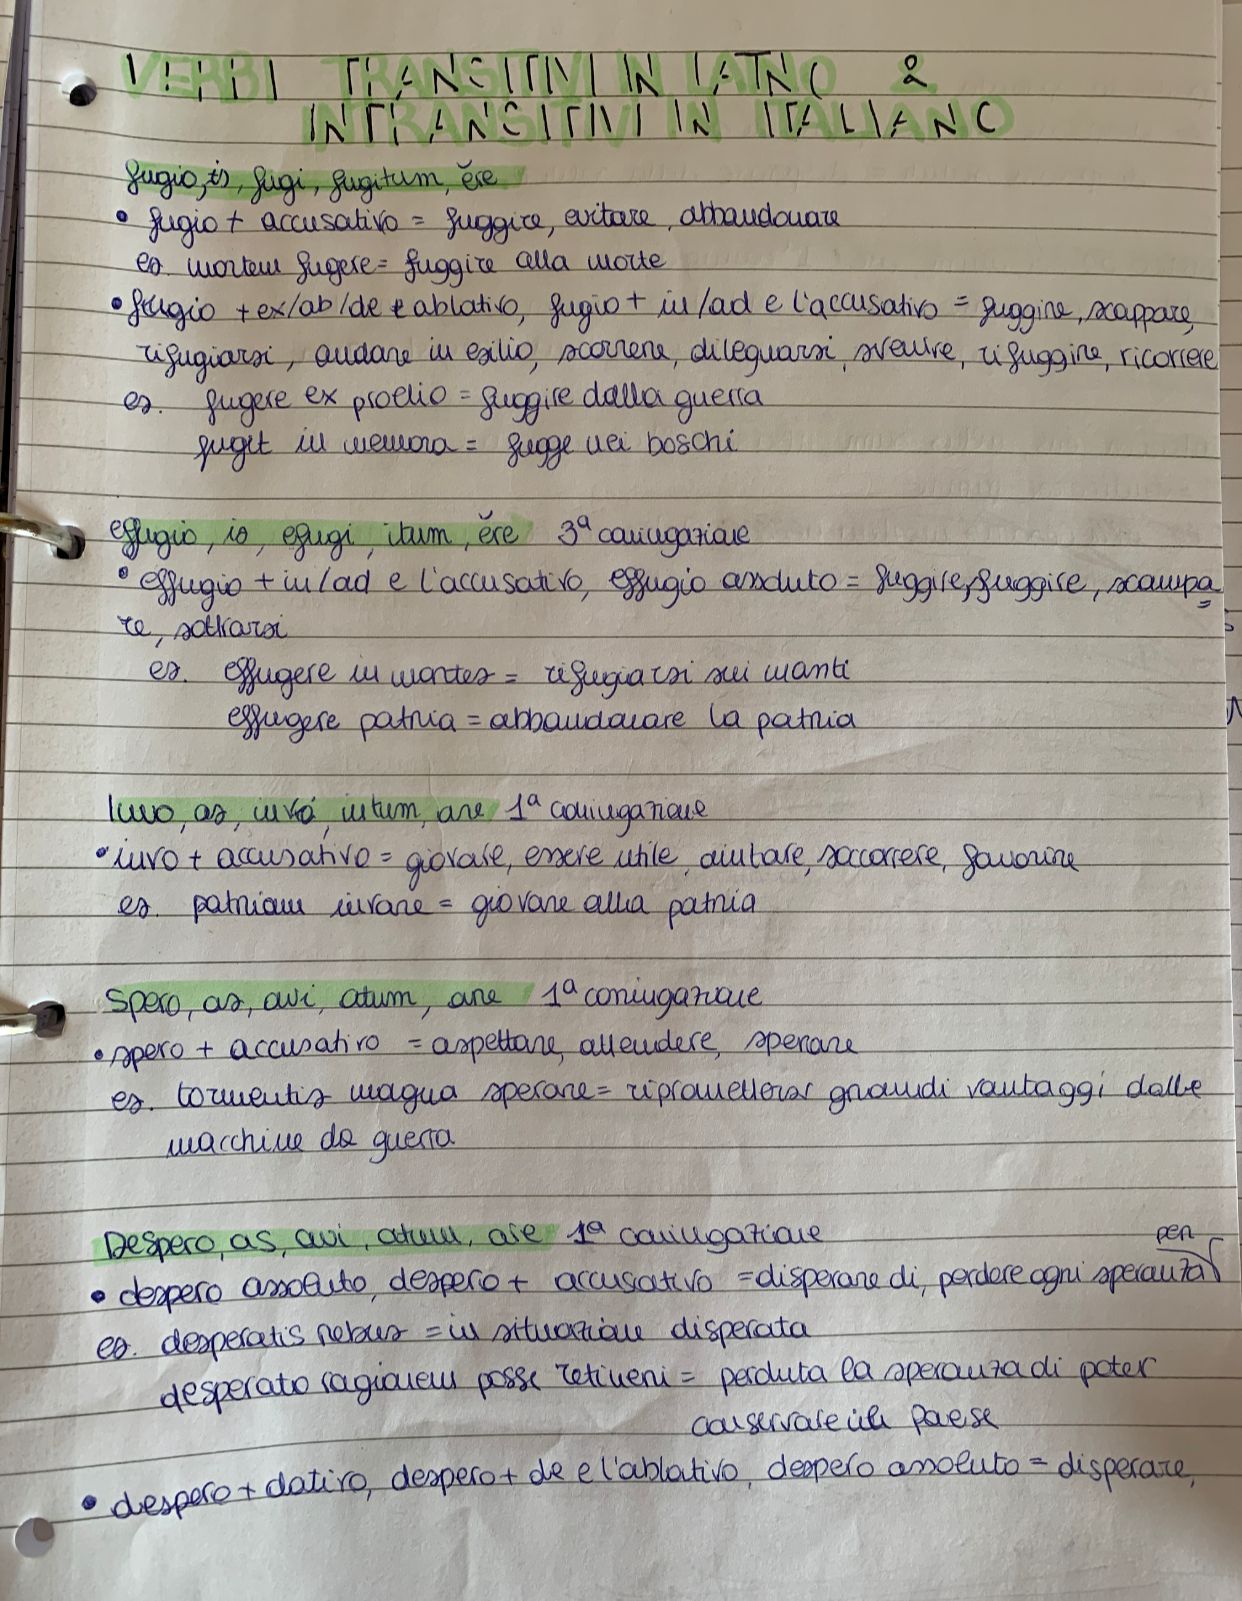 VERBI TRANSITIVI IN LATINO &
INTRANSITIVI IN ITALIANO
fugio, is, fugi, fugitum, ĕre
• fugio + accusativo = fuggire, evitare, abbandonare
es. mortem fugere = fuggire alla morte
• fugio + ex/ab/de e ablativo, fugio + in/ad e l'accusativo = fuggire, scappare,
rifugiarsi, andare in esilio, scorrere, dileguarsi, svenire, rifuggire, ricorrere
es. fugere ex proelio = fuggire dalla guerra
fugit in nemora = fugge nei boschi
effugio, is, effugi, itum, ĕre 3ª coniugazione
• effugio + in/ad e l'accusativo, effugio assoluto = fuggire, sfuggire, scampa
re, sottrarsi
es. effugere in montes = rifugiarsi sui monti
effugere patria = abbandonare la patria
Iuvo, as, iuvi, iutum, are 1ª coniugazione
• iuvo + accusativo = giovare, essere utile, aiutare, soccorrere, favorire
es. patriam iuvare = giovare alla patria
Spero, as, avi, atum, are 1ª coniugazione
• spero + accusativo = aspettare, attendere, sperare
es. tormentis magna sperare = ripromettersi grandi vantaggi dalle
macchine da guerra
Despero, as, avi, atum, are 1ª coniugazione
per
• despero assoluto, despero + accusativo = disperare di, perdere ogni speranza
es. desperatis rebus = in situazione disperata
desperato ragionem posse retineri = perduta la speranza di poter
conservare il paese
• despero + dativo, despero + de e l'ablativo, despero assoluto = disperare,